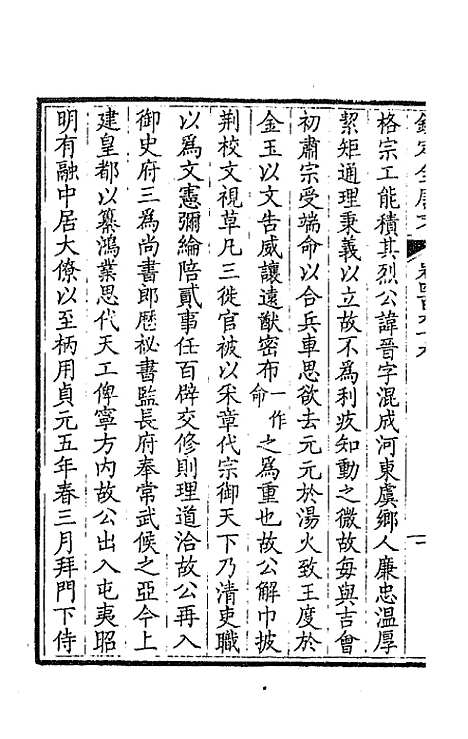 格宗工能積其烈公諱晉字混成河東虞鄉人廉忠溫厚
絜矩通理秉義以立故不爲利疚知動之微故每與吉會
初肅宗受端命以合兵車思欲去元元於湯火致王度於
金玉以文告威讓遠猷密布一作命之爲重也故公解巾披
荆校文視草凡三徙官被以釆章代宗御天下乃清吏職
以爲文憲彌綸陪貳事任百辟交修則理道洽故公再入
御史府三爲尚書郎歷祕書監長府奉常武候之亞今上
建皇都以纂鴻業思代天工俾寧方内故公出入屯夷昭
明有融中居大僚以至柄用貞元五年春三月拜門下侍